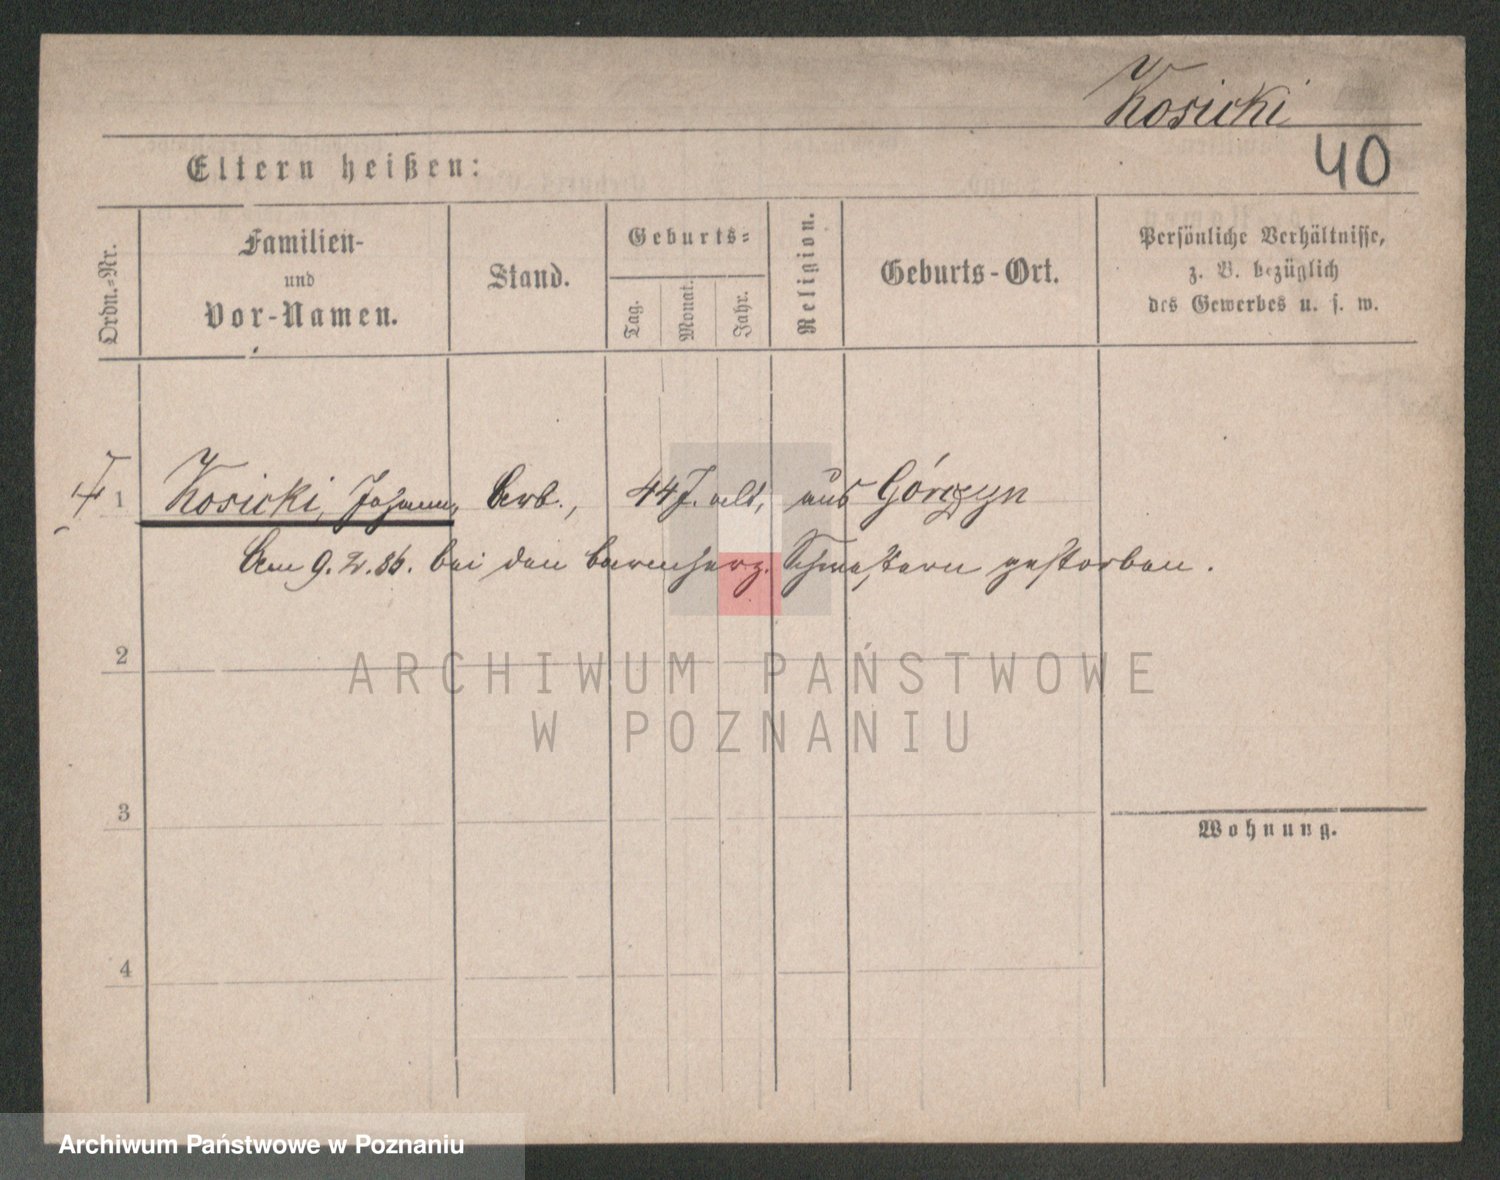 Kosicki
40
Eltern heißen:
Ordn.-Nr.
Familien-
und
Vor-Namen.
Stand.
Geburts-
Tag.
Monat.
Jahr.
Religion.
Geburts-Ort.
Persönliche Verhältnisse,
z. B. bezüglich
des Gewerbes u. s. w.
1 Kosicki, Johann, Arb., 44 J. alt, aus Górczyn
Am 9. 2. 86. bei den barmherz. Schwestern gestorben.
2
ARCHIWUM PAŃSTWOWE
W POZNANIU
3
Wohnung.
4
Archiwum Państwowe w Poznaniu